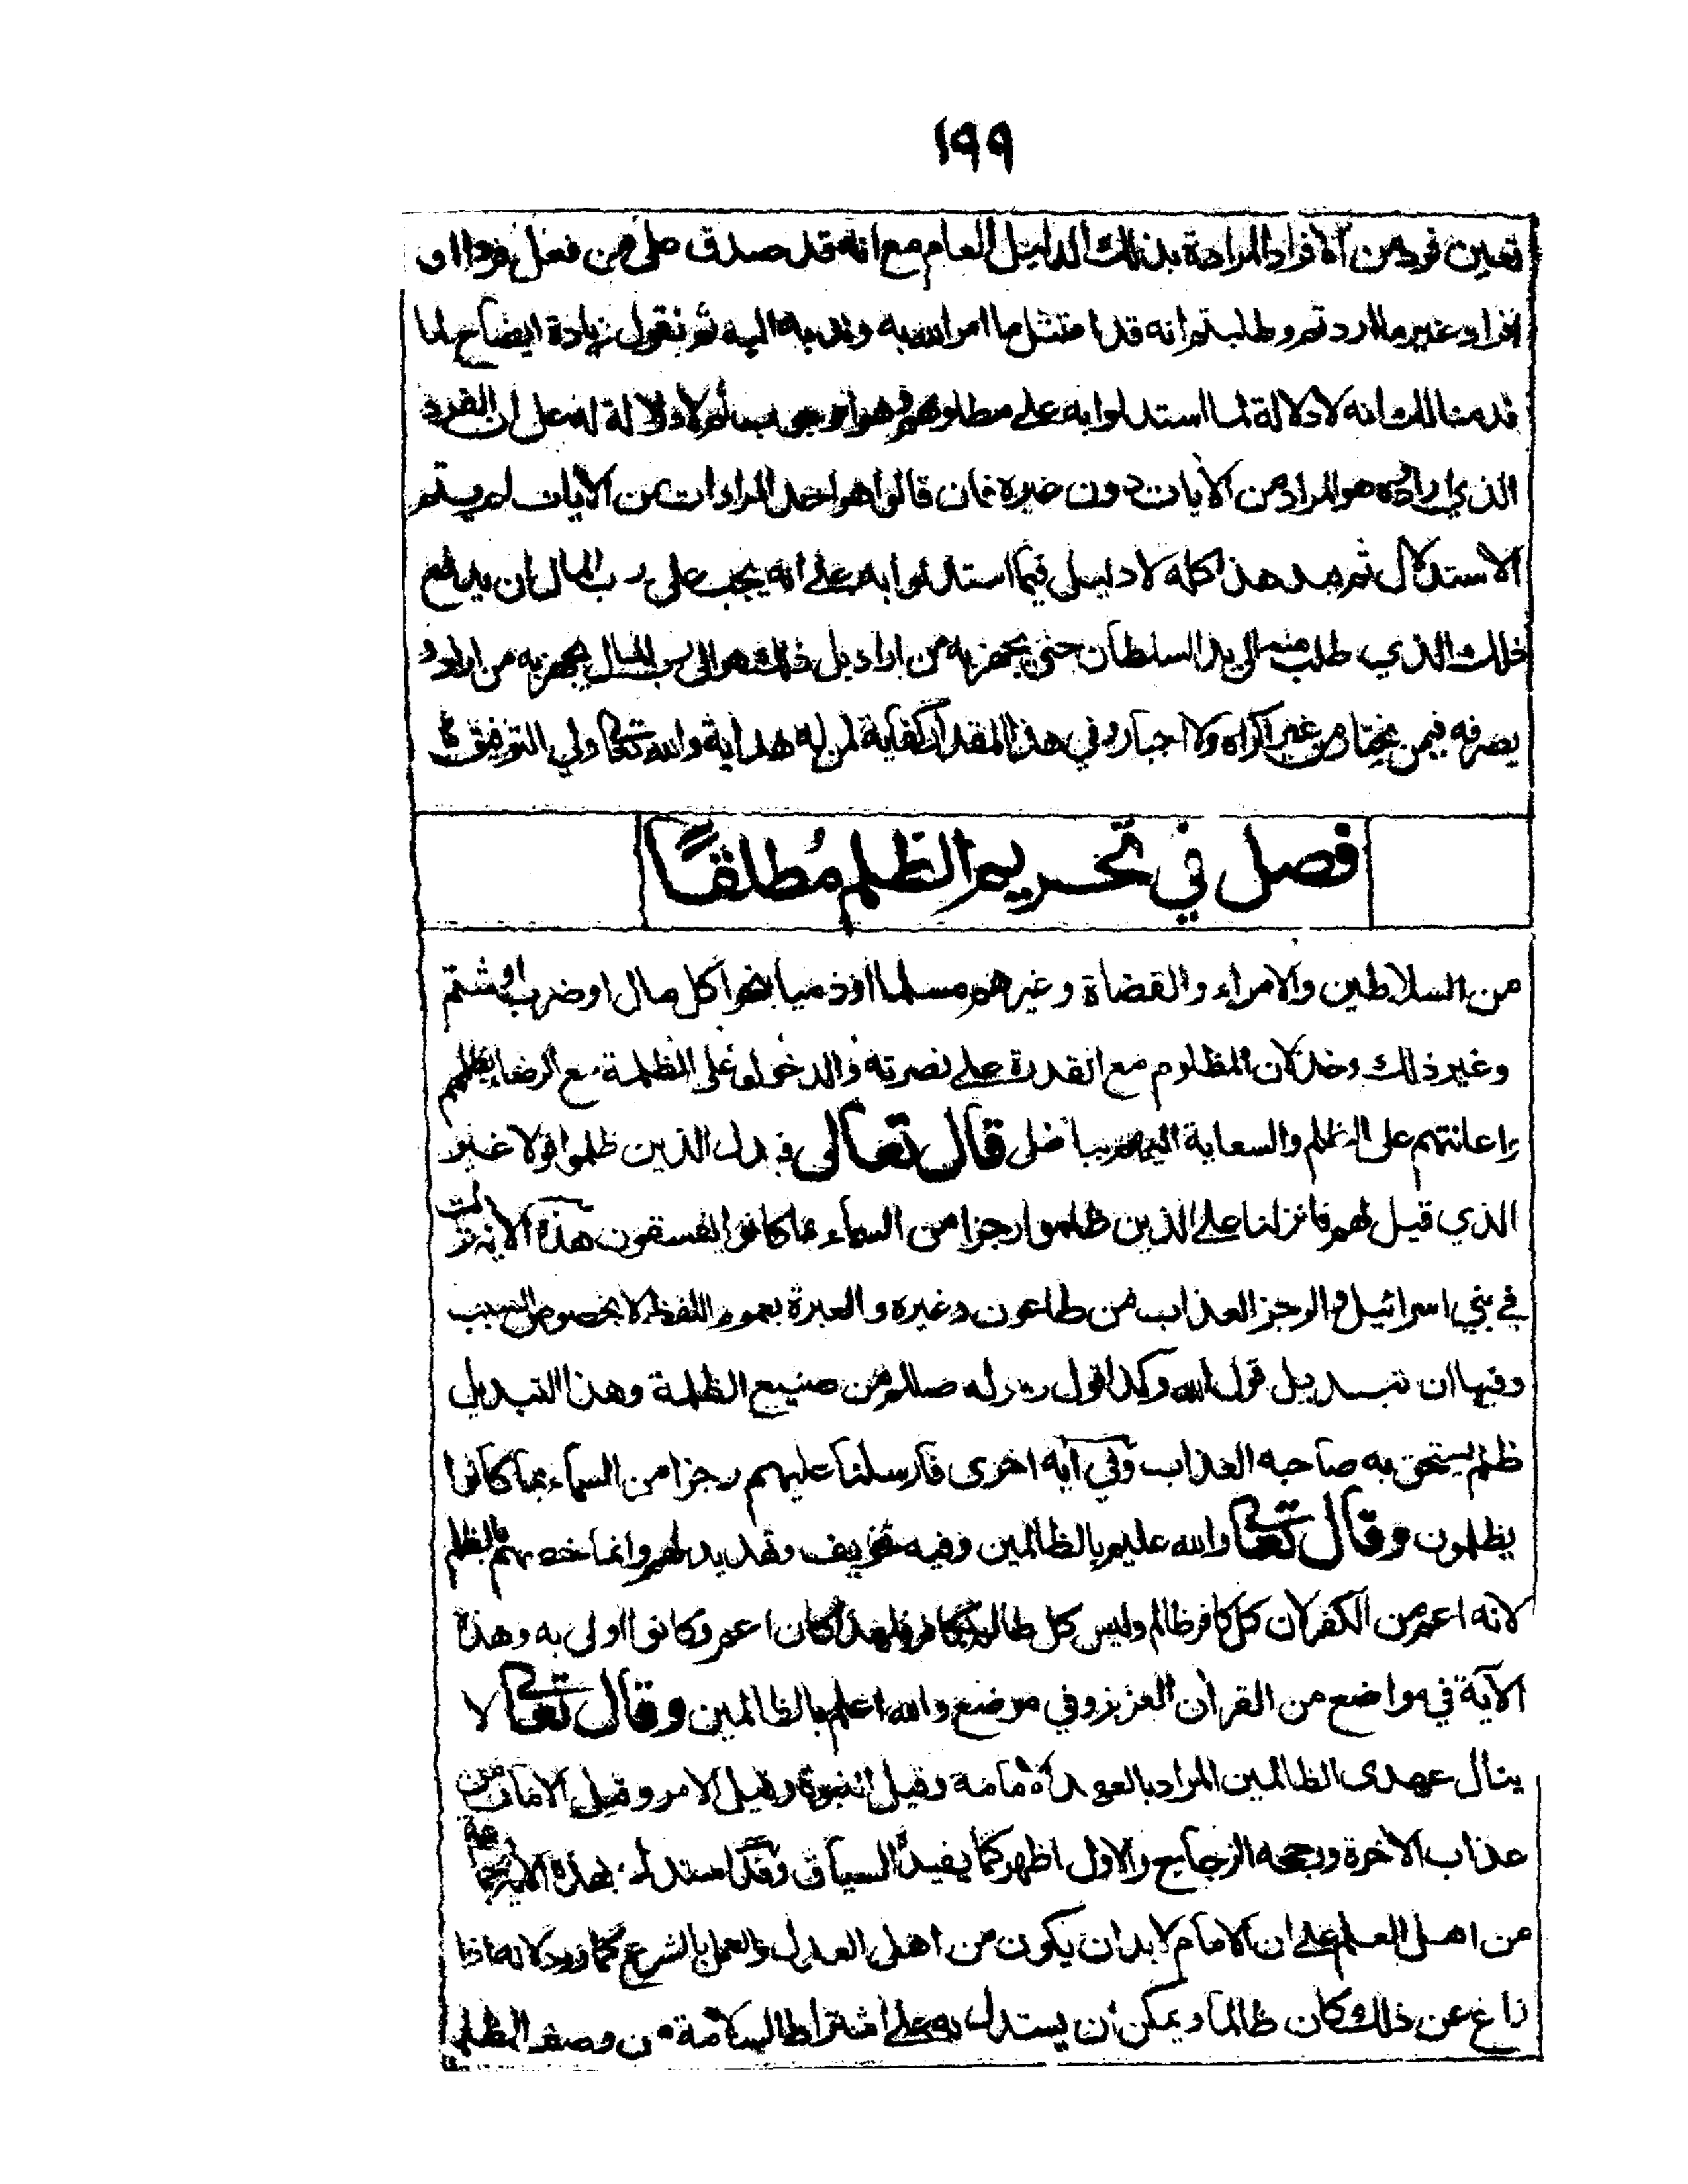 ١٩٩
تعين فرد من الافراد المرادة بذلك الدليل العام مع انه قد صدق على من فعل فردا او
افراد غير ما اردتم وطلبتم انه قد امتثل ما امر الله به وندبه اليه ثم نقول زيادة ايضاح لما
قدمنا لك انه لا دلالة لما استدلوا به على مطلوبهم وهو ولا دلالة له على ان الفرد
الذي ارادوه هو المراد من الايات دون غيره فان قالوا هو احد المرادات من الايات لم يتم
الاستدلال ثم بعد هذا كله لا دليل فيما استدلوا به على انه يجب على رب المال ان يدفع
ذلك الذي طلب منه الى يد السلطان حتى يجهز به من اراد بل ذلك هو الى رب المال يجهز به من اراد و
يصرفه فيمن يختار من غير اكراه ولا اجبار وفي هذا المقدار كفاية لمن له هداية والله تعالى ولي التوفيق
فصل في تحريم الظلم مُطلقًا
من السلاطين والامراء والقضاة وغيرهم مسلما او ذميا بنحو اكل مال او ضرب او شتم
وغير ذلك وخذلان المظلوم مع القدرة على نصرته والدخول على الظلمة مع الرضاء بظلمهم
واعانتهم على الظلم والسعاية اليهم بباطل قال تعالى فبدل الذين ظلموا قولا غير
الذي قيل لهم فانزلنا على الذين ظلموا رجزا من السماء بما كانوا يفسقون هذه الاية نزلت
في بني اسرائيل والرجز العذاب من طاعون وغيره والعبرة بعموم اللفظ لا بخصوص السبب
وفيها ان تبديل قول الله وكذا قول رسوله صللم من صنيع الظلمة وهذا التبديل
ظلم يستحق به صاحبه العذاب وفي آية اخرى فارسلنا عليهم رجزا من السماء بما كانوا
يظلمون وقال تعالى والله عليم بالظالمين وفيه تخويف وتهديد لهم وانما خصهم بالظلم
لانه اعم من الكفر لان كل كافر ظالم وليس كل ظالم كافر فلهذا كان اعم وكانوا اولى به وهذه
الآية في مواضع من القرآن العزيز وفي موضع والله اعلم بالظالمين وقال تعالى لا
ينال عهدى الظالمين المراد بالعهد الامامة وقيل النبوة وقيل الامر وقيل الامان من
عذاب الآخرة ورجحه الزجاج والاول اظهر كما يفيده السياق وقد استدل بهذه الآية جماعة
من اهل العلم على ان الامام لا بد ان يكون من اهل العدل والعمل بالشرع كما ورد لانه اذا
زاغ عن ذلك كان ظالما ويمكن ان يستدل به على اشتراط السلامة من وصف الظلم